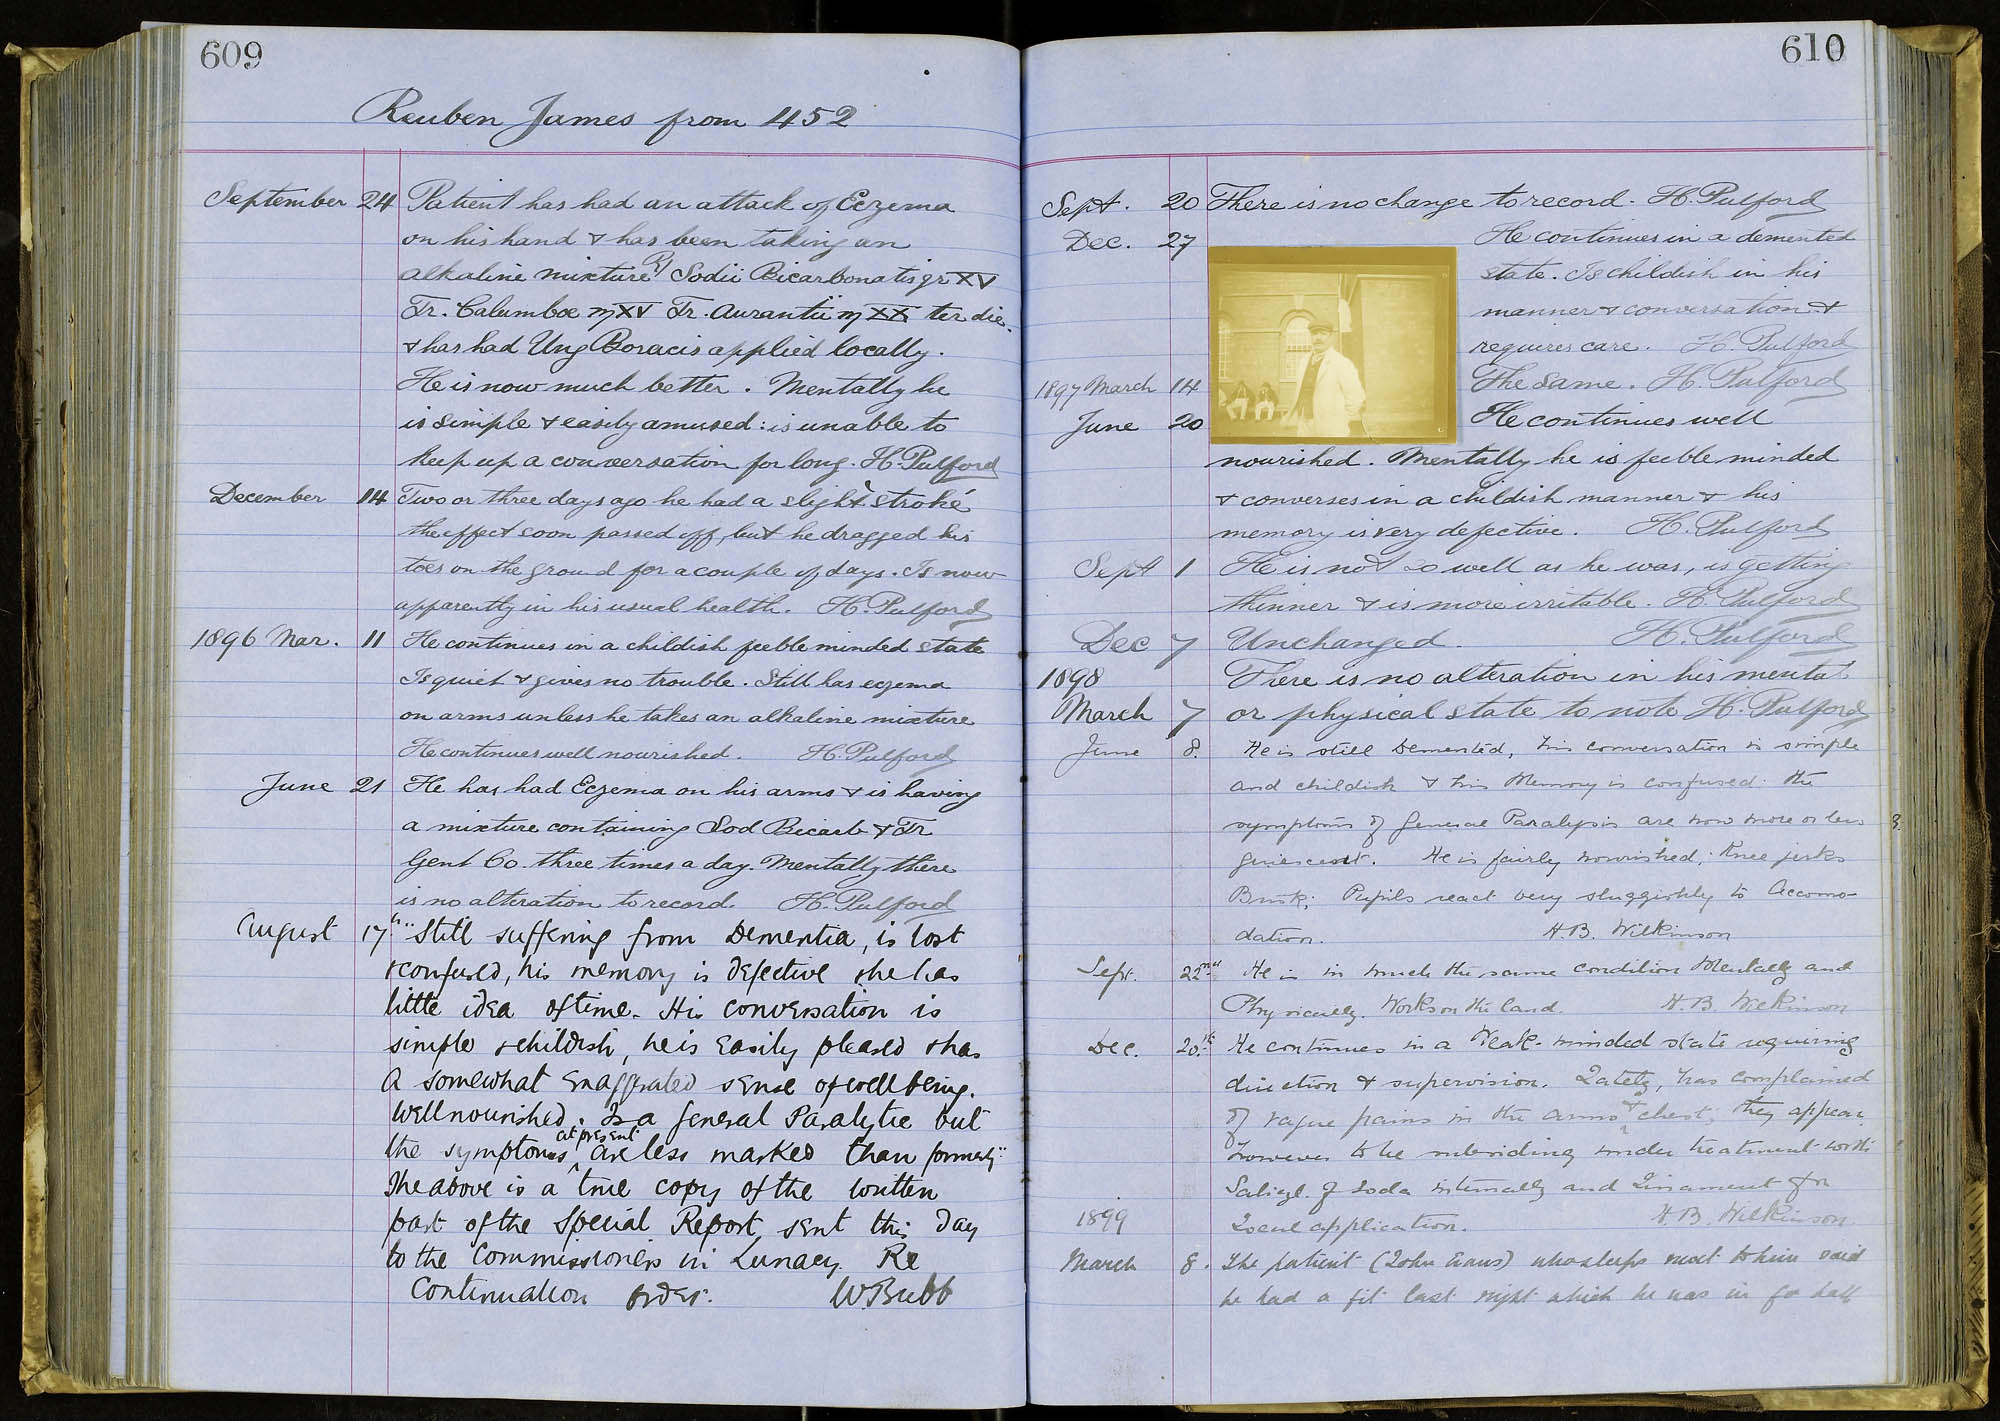 609
Reuben James from 452
September 24 Patient has had an attack of Eczema
on his hand & has been taking an
alkaline mixture Rx Sodii Bicarbonatis gr XV
Tr. Calumboe m XV Tr. Aurantii m XX ter die.
& has had Ung Boracis applied locally.
He is now much better. Mentally he
is simple & easily amused: is unable to
keep up a conversation for long. H. Pulford
December 14 Two or three days ago he had a slight stroke
the effect soon passed off, but he dragged his
toes on the ground for a couple of days. Is now
apparently in his usual health. H. Pulford
1896 Mar. 11 He continues in a childish feeble minded state
Is quiet & gives no trouble. Still has eczema
on arms unless he takes an alkaline mixture
He continues well nourished. H. Pulford
June 21 He has had Eczema on his arms & is having
a mixture containing Sod Bicarb & Tr
Gent Co. three times a day. Mentally there
is no alteration to record. H. Pulford
August 17th "Still suffering from Dementia, is lost
& confused, his memory is defective & he has
little idea of time. His conversation is
simple & childish, he is easily pleased & has
a somewhat exaggerated sense of well being.
Well nourished. Is a General Paralytic but
the symptoms at present are less marked than formerly"
The above is a true copy of the written
part of the Special Report sent this day
to the Commissioners in Lunacy. Re
Continuation order. W Bubb
610
Sept. 20 There is no change to record. H. Pulford
Dec. 27 He continues in a demented
state. Is childish in his
manner & conversation &
requires care. H. Pulford
1897 March 14 The same. H. Pulford
June 20 He continues well
nourished. Mentally he is feeble minded
& converses in a childish manner & his
memory is very defective. H. Pulford
Sept 1 He is not so well as he was, is getting
thinner & is more irritable. H. Pulford
Dec 7 Unchanged. H. Pulford
1898 There is no alteration in his mental
March 7 or physical state to note H. Pulford
June 8. He is still Demented, his conversation is simple
and childish & his Memory is confused. The
symptoms of General Paralysis are now more or less
quiescent. He is fairly nourished; Knee jerks
Brisk; Pupils react very sluggishly to Accomo-
dation. H.B. Wilkinson
Sept. 22nd He is in much the same condition Mentally and
Physically. Works on the land. H.B. Wilkinson
Dec. 20th He continues in a Weak-minded state requiring
direction & supervision. Lately, has complained
of vague pains in the arms & chest; they appear,
however to be subsiding under treatment with
Salicyl. of Soda internally and Liniment for
1899 Local application. H.B. Wilkinson
March 8. The patient (John Evans) who sleeps next to him said
he had a fit last night which he was in for half